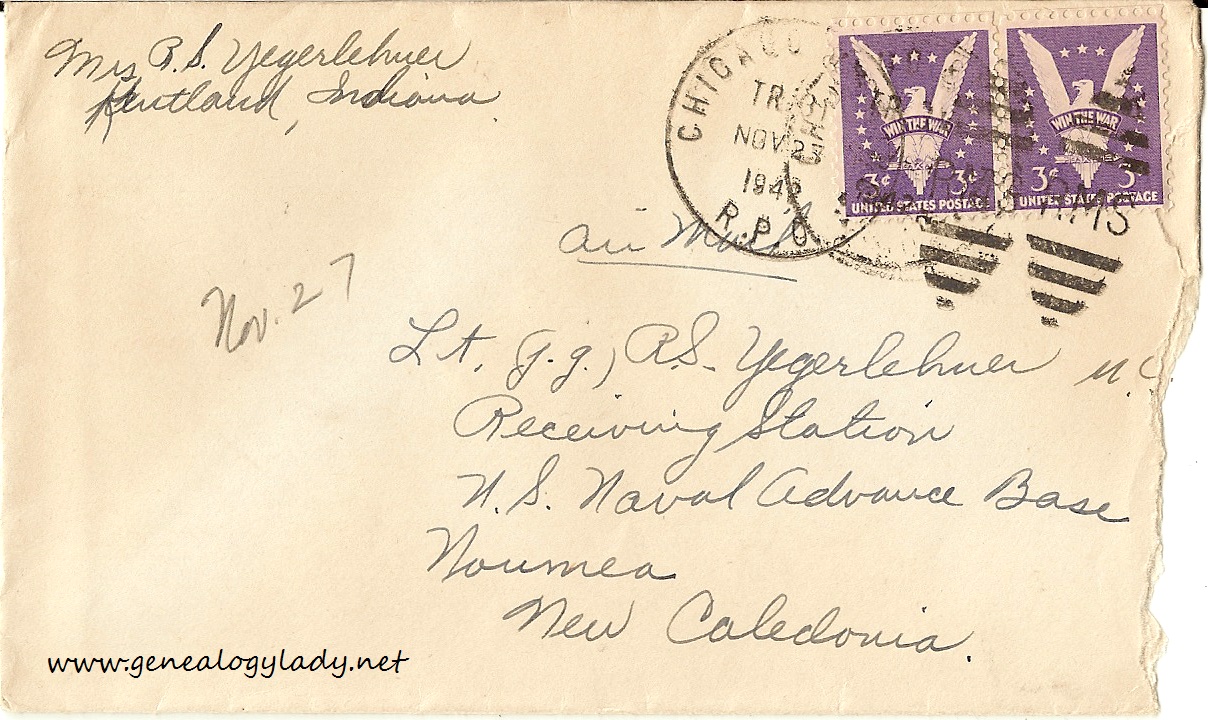 Mrs R.S. Yegerlehner
Kentland, Indiana
CHICAGO
TR.
NOV 23
1942
R.P.O.
WIN THE WAR
3¢ 3¢
UNITED STATES POSTAGE
WIN THE WAR
3¢ 3
UNITED STATES POSTAGE
RMS RMS
Air Mail
Nov. 27
Lt. (j.g.) R.S. Yegerlehner
Receiving Station
U.S. Naval Advance Base
Noumea
New Caledonia.
www.genealogylady.net